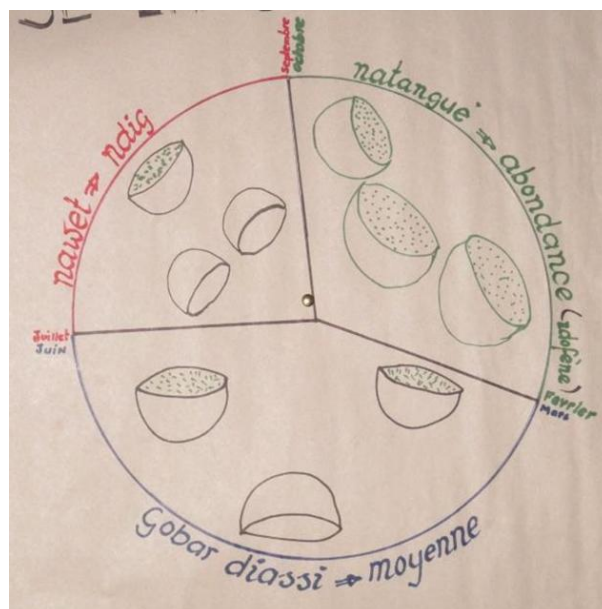 septembre
octobre
nawet ⇒ ndig
natangué ⇒ abondance (ndofène)
Juillet
Juin
Fevrier
Mars
Gobar diassi ⇒ moyenne